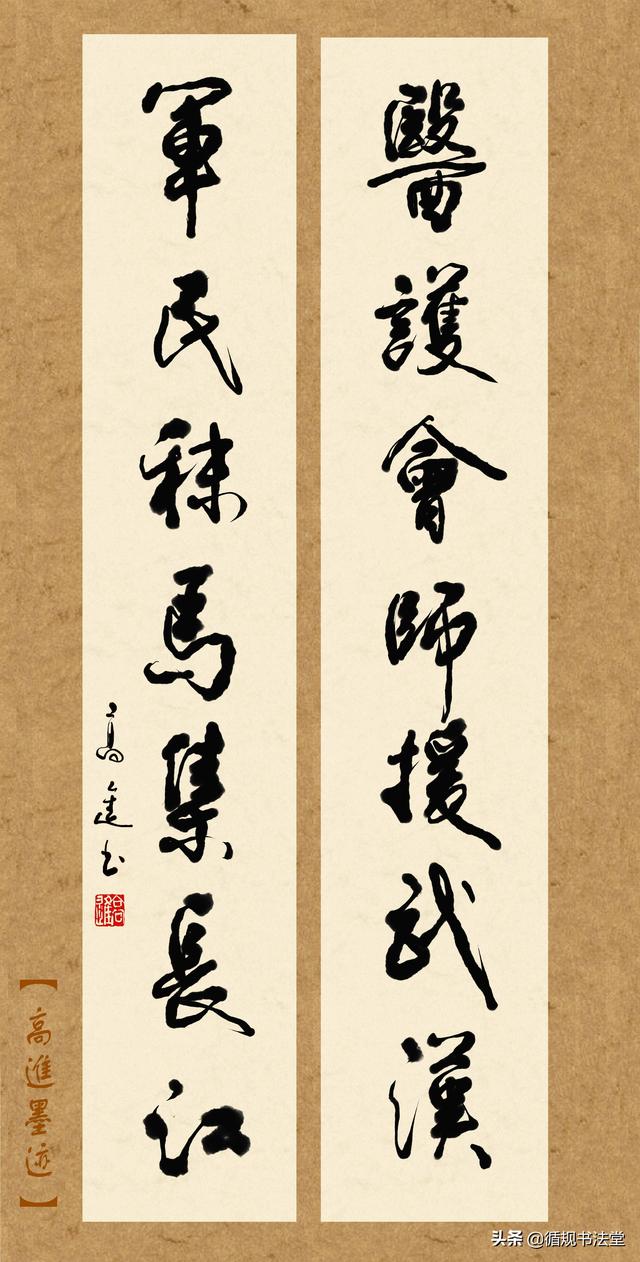 醫護會師援武漢
軍民秣馬集長江
高進書
高進
【高進墨迹】
头条 @循规书法堂